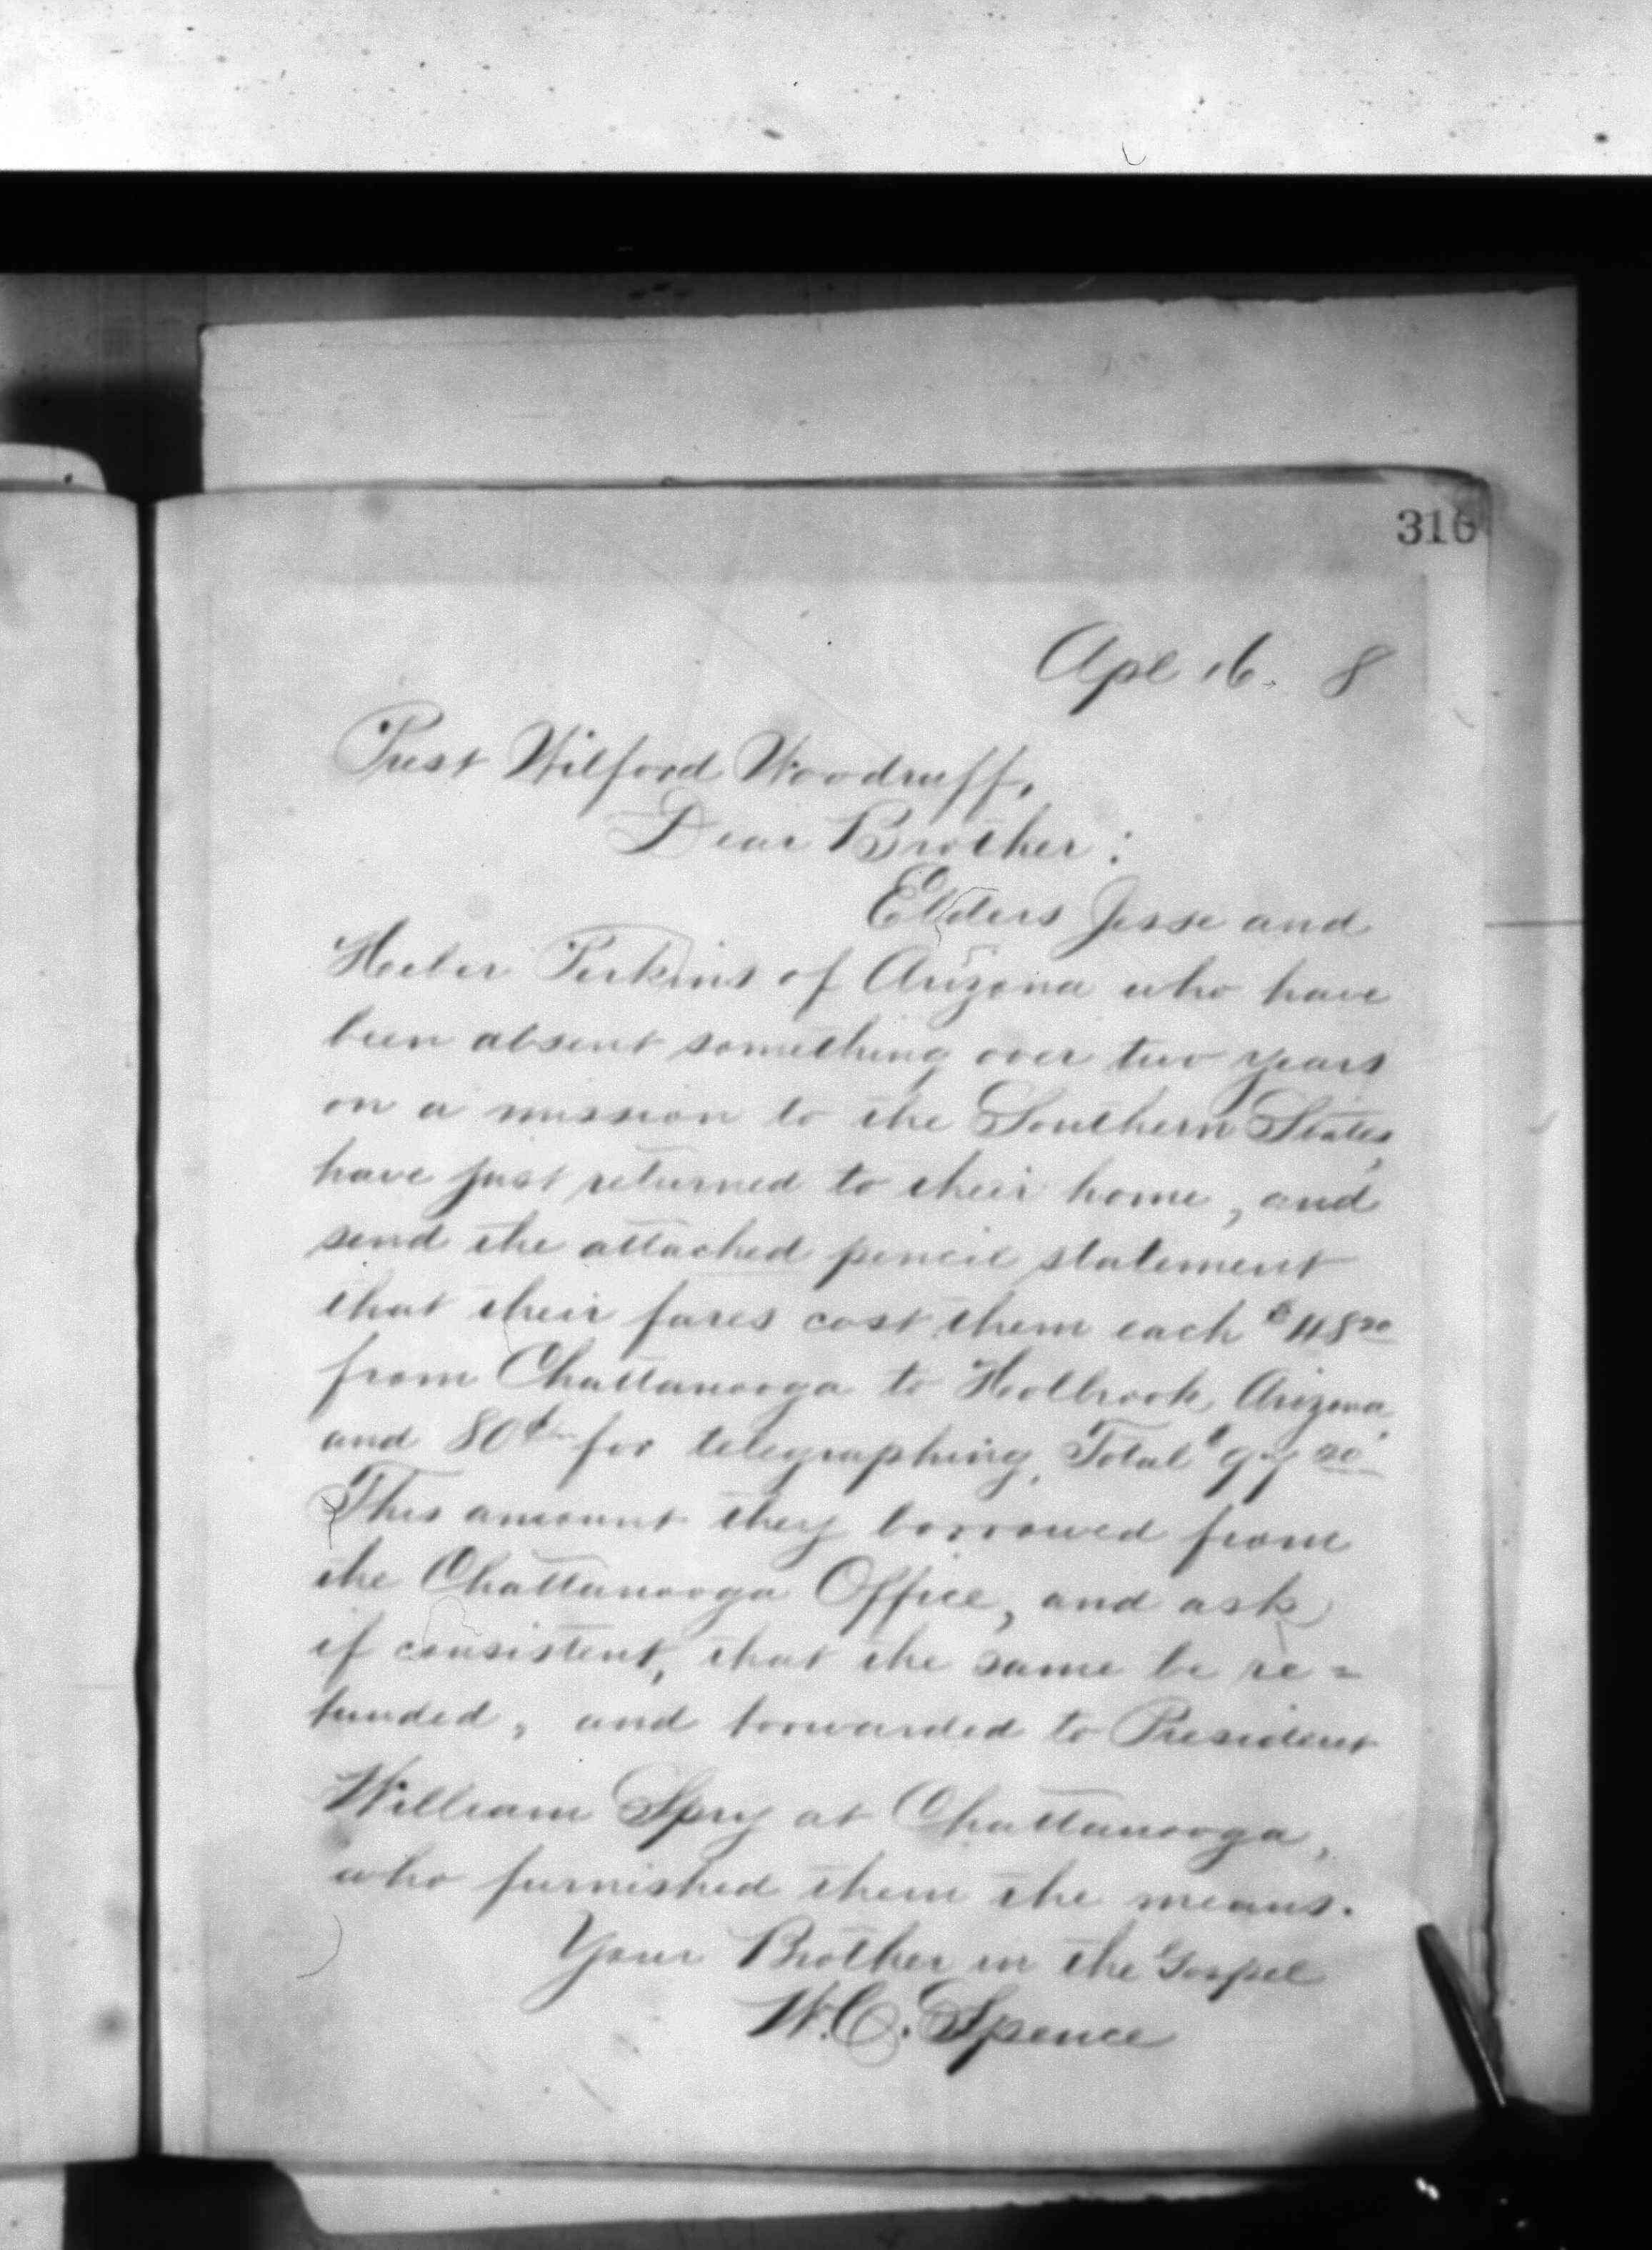 316
Apl 16. 8
Prest Wilford Woodruff,
Dear Brother:
Elders Jesse and
Heber Perkins of Arizona who have
been absent something over two years
on a mission to the Southern States,
have just returned to their home, and
send the attached pencil statement
that their fares cost them each $48 20
from Chattanooga to Holbrook Arizona,
and 80¢ for telegraphing, Total $97 20
This amount they borrowed from
the Chattanooga Office, and ask
if consistent, that the same be re=
funded, and forwarded to President
William Spry at Chattanooga,
who furnished them the means.
Your Brother in the Gospel
W.C. Spence